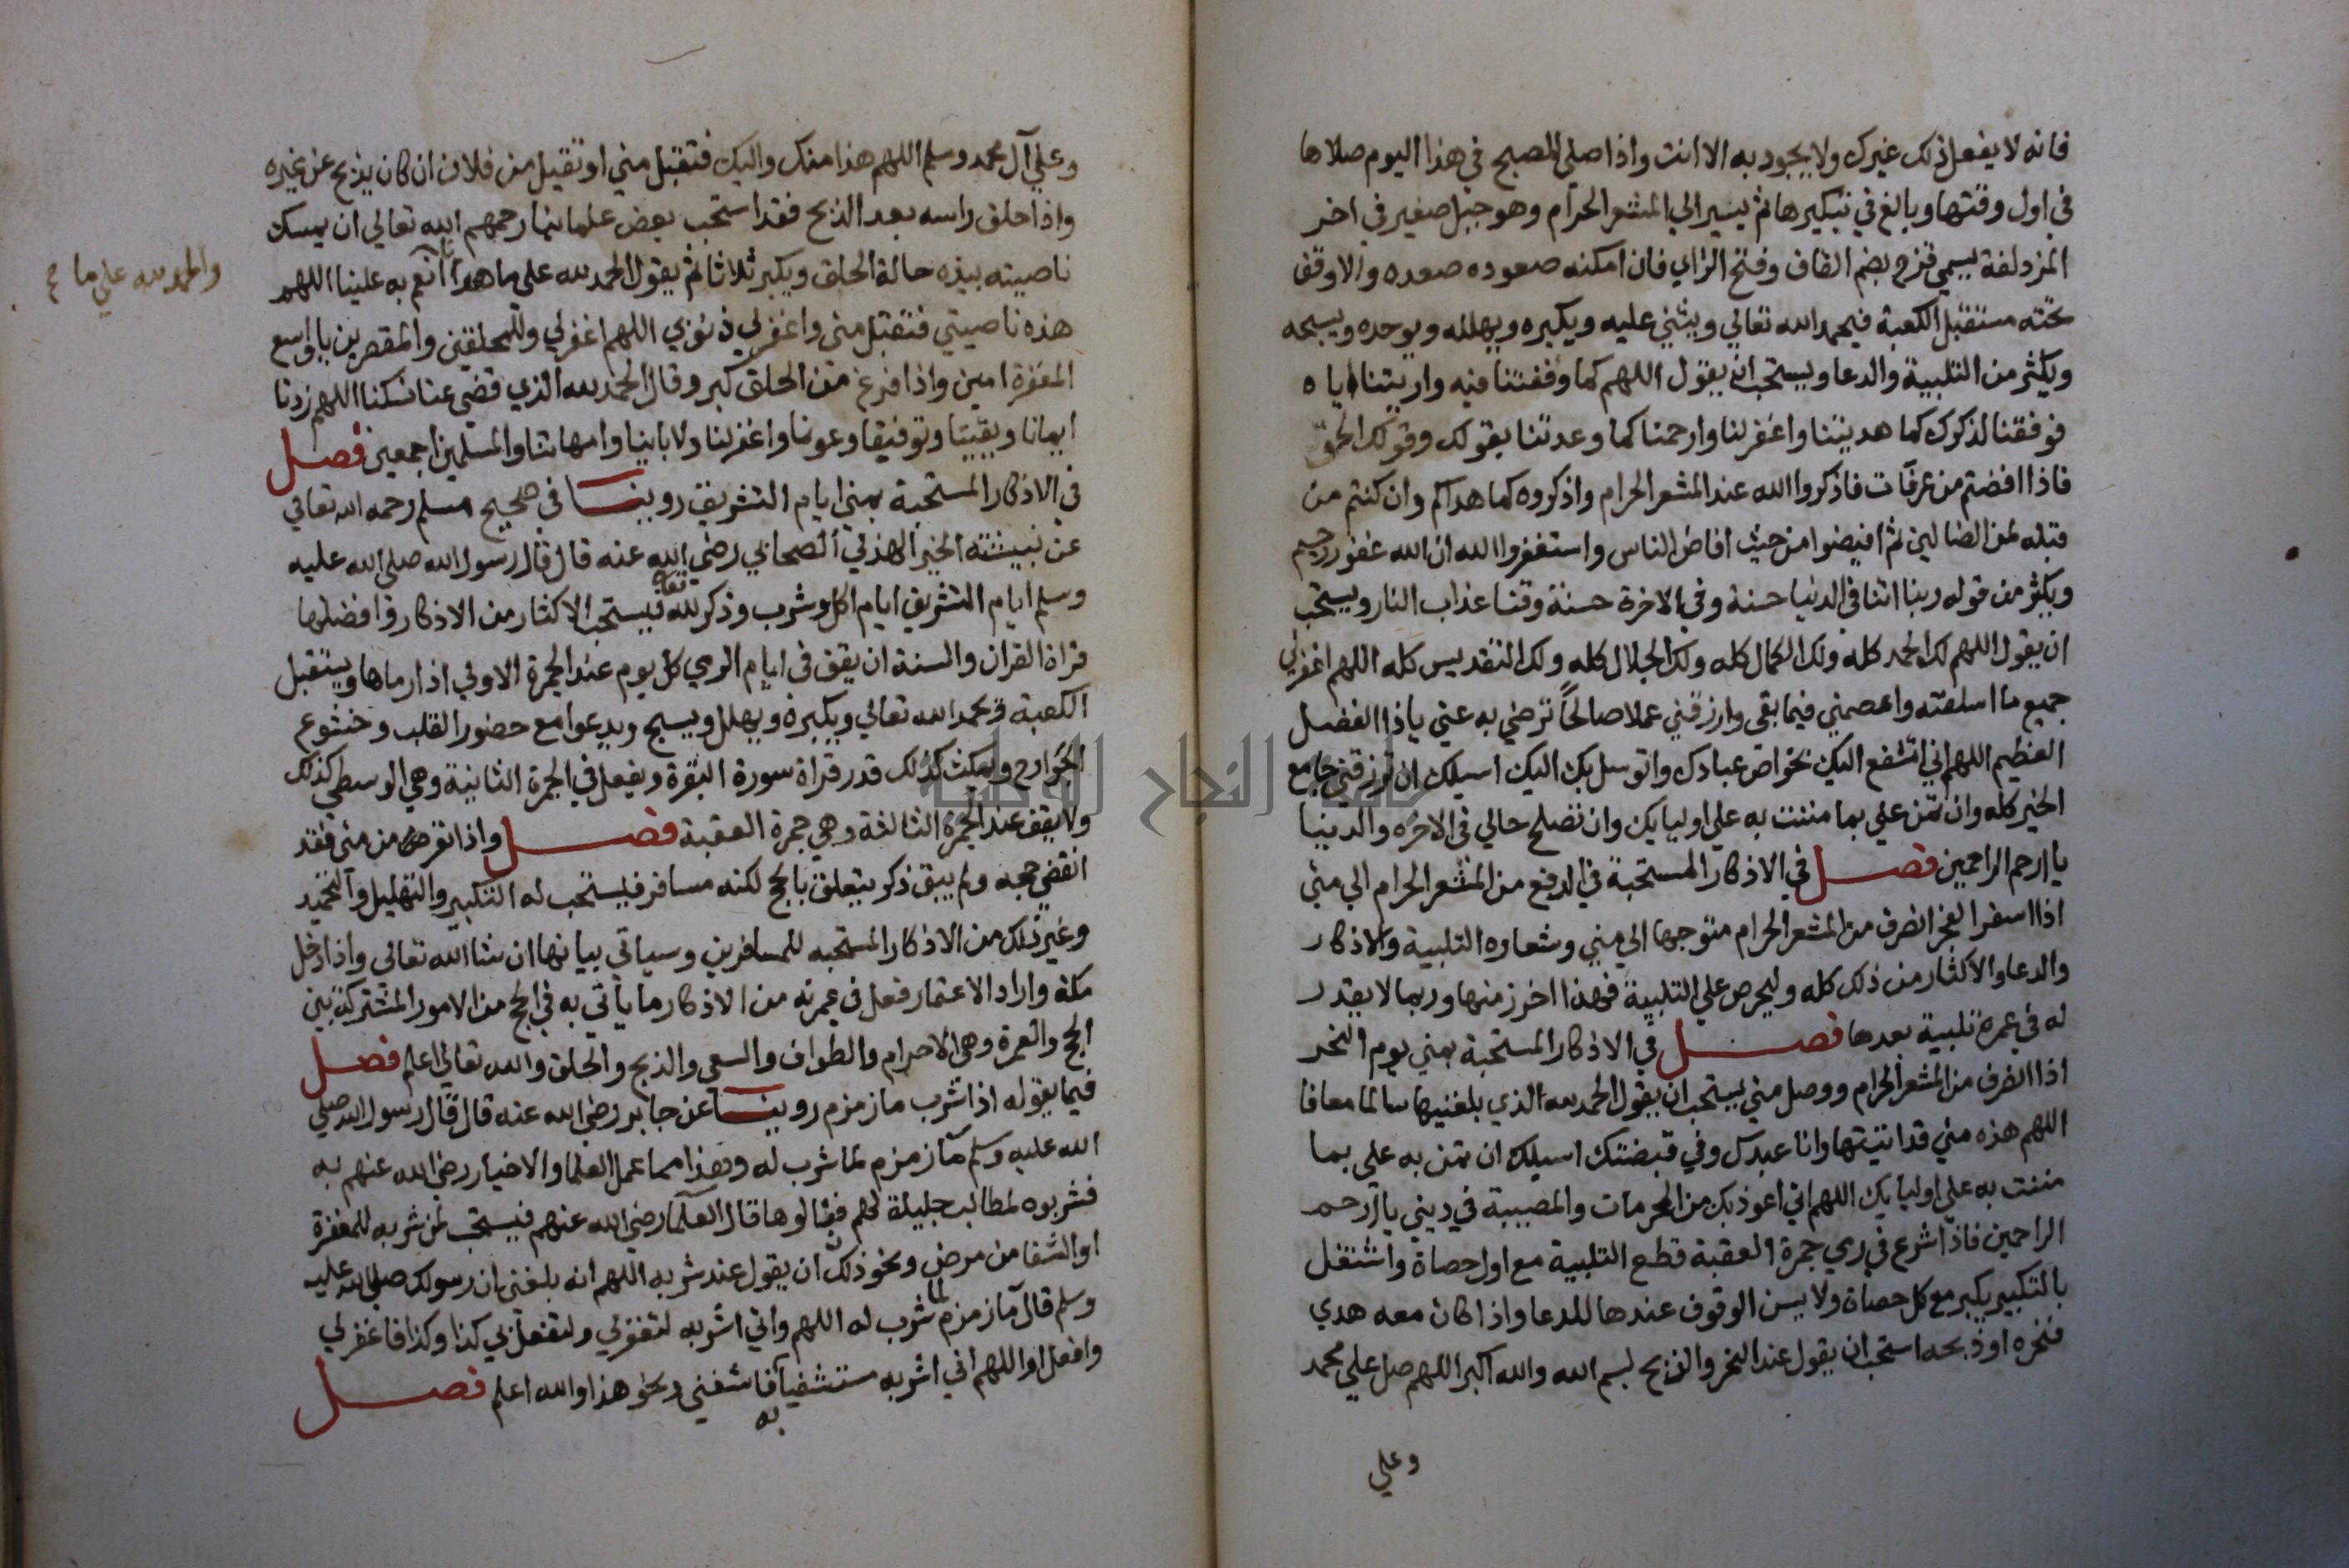 فانه لا يفعل ذلك غيرك ولا يجود به الا انت واذا صلى الصبح في هذا اليوم صلاها
في اول وقتها وبالغ في تبكيرها ثم يسير الي المشعر الحرام وهو جبل صغير في اخر
المزدلفة يسمي قزح بضم القاف وفتح الزاي فان امكنه صعوده صعده والا وقف
تحته مستقبل الكعبة فيحمد الله تعالي ويثني عليه ويكبره ويهلله ويوحده ويسبحه
ويكثر من التلبية والدعا ويستحب ان يقول اللهم كما وقفتنا فيه واريتنا اياه
فوفقنا لذكرك كما هديتنا واغفر لنا وارحمنا كما وعدتنا بقولك وقولك الحق
فاذا افضتم من عرفات فاذكروا الله عند المشعر الحرام واذكروه كما هداكم وان كنتم من
قبله لمن الضالين ثم افيضوا من حيث افاض الناس واستغفروا الله ان الله غفور رحيم
ويكثر من قوله ربنا اتنا في الدنيا حسنة وفي الاخرة حسنة وقنا عذاب النار ويستحب
ان يقول اللهم لك الحمد كله ولك الكمال كله ولك الجلال كله ولك التقديس كله اللهم اغفر لي
جميع ما اسلفته واعصمني فيما بقى وارزقني عملا صالحاً ترضي به عني ياذا الفضل
العظيم اللهم اني اتشفع اليك بخواص عبادك واتوسل بك اليك اسيلك ان ترزقني جوامع
الخير كله وان تمن علي بما مننت به علي اوليايك وان تصلح حالي في الاخره والدنيا
يا ارحم الراحمين فصل في الاذكار المستحبة في الدفع من المشعر الحرام الي مني
اذا اسفر الفجر انصرف من المشعر الحرام متوجها الي مني وشعاره التلبية والاذكار
والدعا والاكثار من ذلك كله وليحرص علي التلبية فهذا اخر زمنها وربما لا يقدر
له في عمره تلبية بعدها فصل في الاذكار المستحبة بمني يوم النحر
اذا انصرف من المشعر الحرام ووصل مني يستحب ان يقول الحمد لله الذي بلغنيها سالما معافا
اللهم هذه مني قد اتيتها وانا عبدك وفي قبضتك اسيلك ان تمن به علي بما
مننت به علي اوليايك اللهم اني اعوذ بك من الحرمات والمصيبة في ديني يا ارحم
الراحمين فاذا شرع في رمي جمرة العقبة قطع التلبية مع اول حصاة واشتغل
بالتكبير يكبر مع كل حصاة ولا يسن الوقوف عندها للدعا واذا كان معه هدي
فنحره او ذبحه استحب ان يقول عند النحر والذبح بسم الله والله اكبر اللهم صل علي محمد
وعلي
وعلي آل محمد وسلم اللهم هذا منك واليك فتقبل مني او تقبل من فلان ان كان يذبح عن غيره
واذا حلق راسه بعد الذبح فقد استحب بعض علمائنا رحمهم الله تعالي ان يمسك
ناصيته بيده حالة الحلق ويكبر ثلاثا ثم يقول الحمد لله على ما هدانا انعم به علينا اللهم
والحمد لله علي ما
هذه ناصيتي فتقبل مني واغفر لي ذنوبي اللهم اغفر لي وللمحلقين والمقصرين يا واسع
المغفرة امين واذا فرغ من الحلق كبر وقال الحمد لله الذي قضي عنا نسكنا اللهم زدنا
ايمانا ويقينا وتوفيقا وعونا واغفر لنا ولابائنا وامهاتنا والمسلمين اجمعين فصل
في الاذكار المستحبة بمني ايام التشريق روينا في صحيح مسلم رحمه الله تعالي
عن نبيشة الخير الهذلي الصحابي رضي الله عنه قال قال رسول الله صلي الله عليه
وسلم ايام التشريق ايام اكل وشرب وذكر لله تعالي فيستحب الاكثار من الاذكار وافضلها
قراة القران والسنة ان يقف في ايام الرمي كل يوم عند الجمرة الاولي اذا رماها ويستقبل
الكعبة ويحمد الله تعالي ويكبره ويهلل ويسبح ويدعوا مع حضور القلب وخشوع
الجوارح ويمكث كذلك قدر قراة سورة البقرة ويفعل في الجمرة الثانية وهي الوسطي كذلك
ولا يقف عند الجمرة الثالثة وهي جمرة العقبة فصل واذا نفر من مني فقد
انقضي حجه ولم يبق ذكر يتعلق بالحج لكنه مسافر فيستحب له التكبير والتهليل والتحميد
وغير ذلك من الاذكار المستحبه للمسافرين وسياتي بيانها ان شا الله تعالى واذا دخل
مكة واراد الاعتمار فعل في عمرته من الاذكار ما يأتي به في الحج من الامور المشتركة بين
الحج والعمرة وهي الاحرام والطواف والسعي والذبح والحلق والله تعالي اعلم فصل
فيما يقوله اذا شرب ما زمزم روينا عن جابر رضي الله عنه قال قال رسول الله صلي
الله عليه وسلم مآ زمزم لما شرب له وهذا مما عمل العلما والاخيار رضي الله عنهم به
فشربوه لمطالب جليلة لهم فنالوها قال العلما رضي الله عنهم فيستحب لمن شربه للمغفرة
او الشفا من مرض ونحو ذلك ان يقول عند شربه اللهم انه بلغني ان رسولك صلي الله عليه
وسلم قال مآ زمزم لما شرب له اللهم واني اشربه لتغفر لي ولتفعل بي كذا وكذا فاغفر لي
وافعل او اللهم اني اشربه مستشفيا به فاشفني ونحو هذا والله اعلم فصل